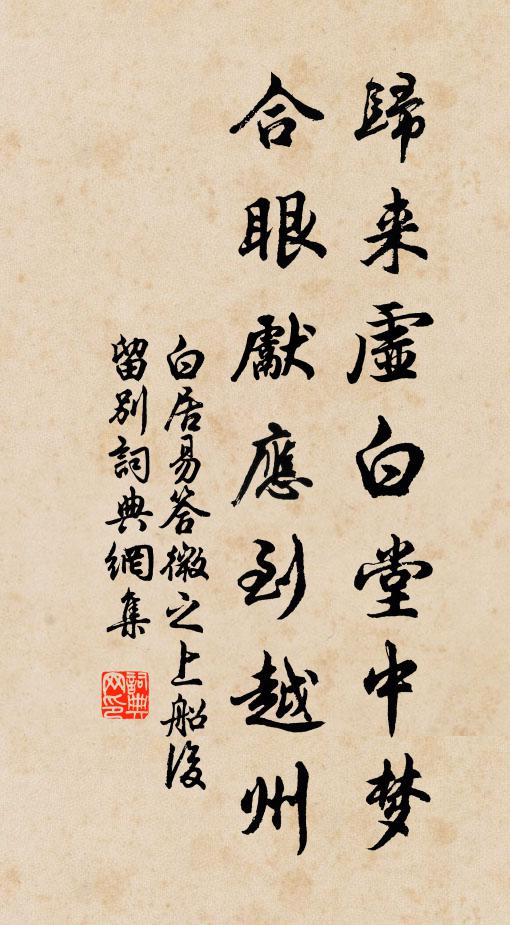 歸来虛白堂中梦
合眼獻應到越州
白居易答微之上船後
留别詞典網集
詞典
网印